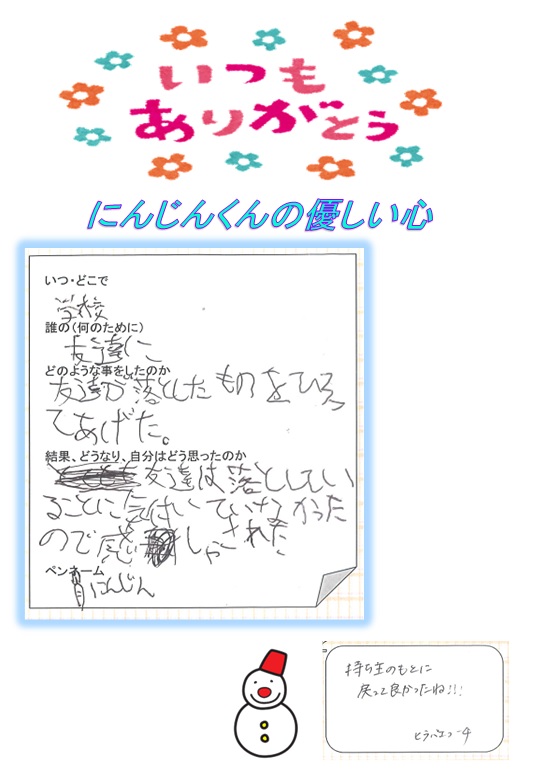 いつも
ありがとう
にんじんくんの優しい心
いつ・どこで
学校
誰の(何のために)
友達に
どのような事をしたのか
友達が落としたものをひろっ
てあげた。
結果、どうなり、自分はどう思ったのか
友達は落としてい
ることに気ずいていなかった
ので感しゃされた
ペンネーム
にんじん
持ち主のもとに
戻って良かったね!!!